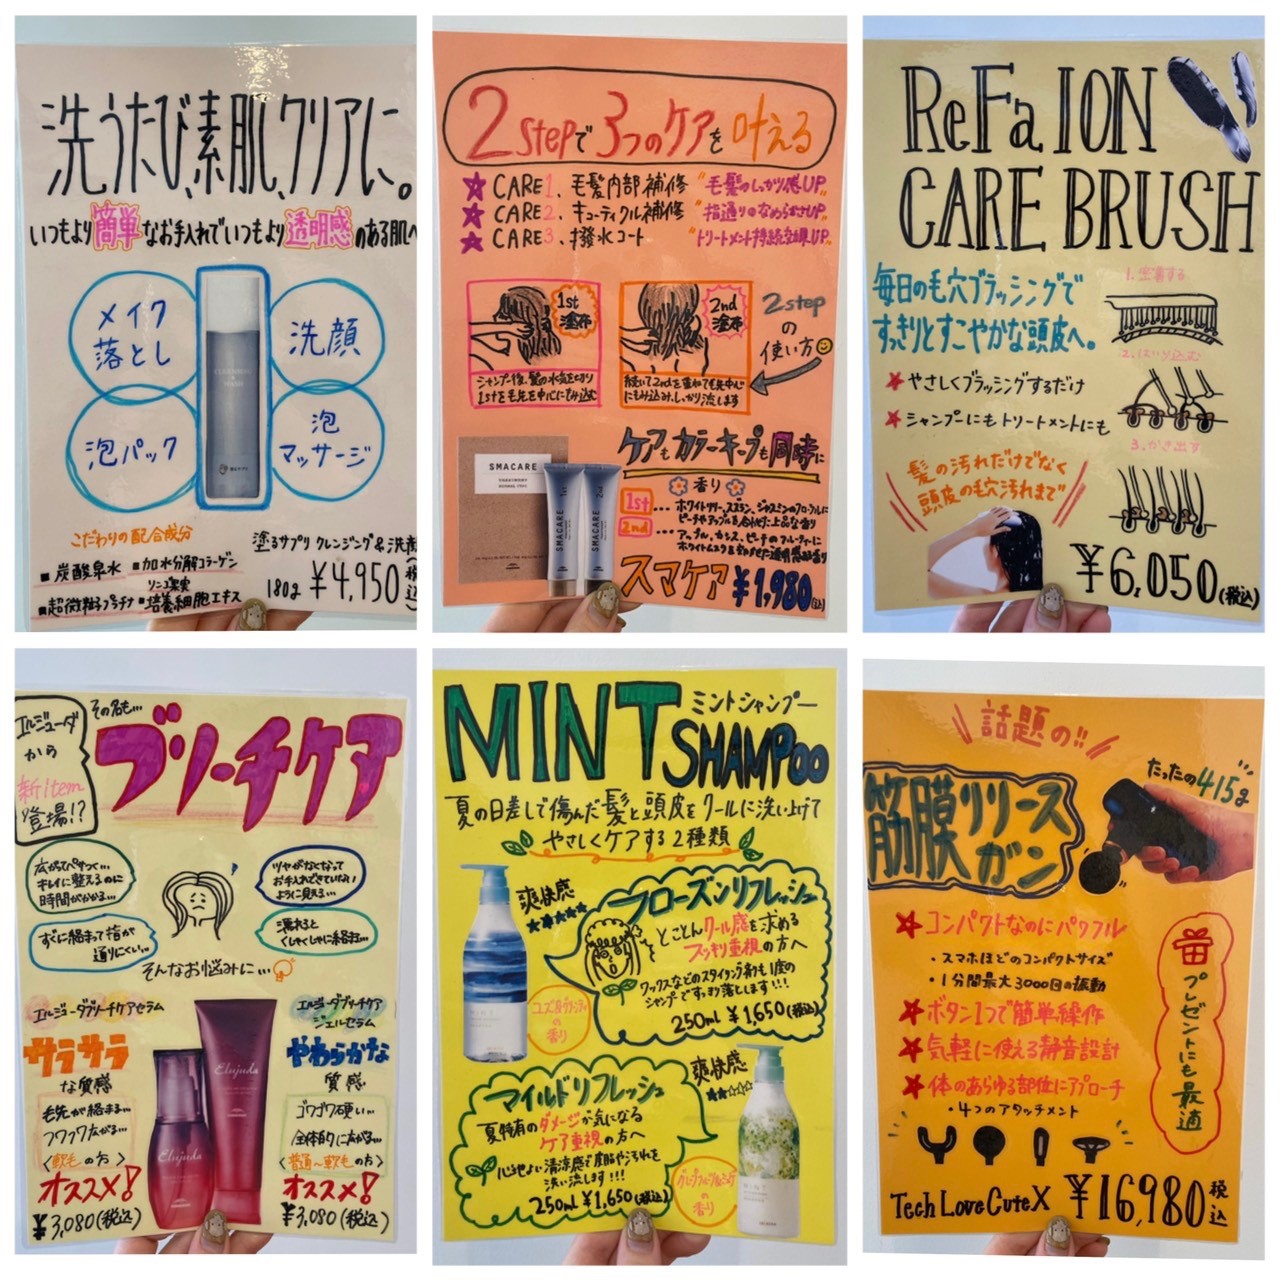 洗うたび、素肌、クリアに。
いつもより簡単なお手入れでいつもより透明感のある肌へ
メイク
落とし
洗顔
泡パック
泡
マッサージ
こだわりの配合成分
■炭酸泉水 ■加水分解コラーゲン
■超微粒子プラチナ ■リンゴ果実
培養細胞エキス
塗るサプリ クレンジング&洗顔
180g ¥4,950(税込)
2stepで3つのケアを叶える
★CARE1.毛髪内部補修 "毛髪のしっかり感UP"
★CARE2.キューティクル補修 "指通りのなめらかさUP"
★CARE3.撥水コート "トリートメント持続効果UP"
1st
塗布
シャンプー後、髪の水気を切り
1stを毛先を中心にもみ込む
2nd
塗布
続いて2ndを重ねて毛先中心
にもみ込み、しっかり流します
2step
の
使い方
ケアもカラーキープも同時に
香り
1st…ホワイトリリー、スズラン、ジャスミンのフローラルに
ピーチやアップルを合わせた上品な香り
2nd…アップル、カシス、ピーチのフルーティーに
SMACARE
TREATMENT
SMACARE
SMACARE
スマケア ¥1,980(税込)
ReFa ION
CARE BRUSH
毎日の毛穴ブラッシングで
すっきりとすこやかな頭皮へ。
★やさしくブラッシングするだけ
★シャンプーにもトリートメントにも
1.密着する
2.はいり込む
3.かき出す
髪の汚れだけでなく
頭皮の毛穴汚れまで
¥6,050(税込)
エルジューダ
から
新Item
登場!?
その名も…
ブリーチケア
広がってパサつく…
キレイに整えるのに
時間がかかる…
ツヤがなくなって
お手入れできていない
ように見える…
すぐに絡まって指が
通りにくい…
濡れると
くしゃくしゃに絡まる…
そんなお悩みに…
エルジューダブリーチケアセラム
サラサラ
な質感
毛先が絡まる…
フワフワ広がる…
〈軟毛の方〉
オススメ!
¥3,080(税込)
Elujuda
Elujuda
エルジューダブリーチケア
ジェルセラム
やわらかな
質感
ゴワゴワ硬い…
全体的に広がる…
〈普通〜硬毛の方〉
オススメ!
¥3,080(税込)
MINT ミントシャンプー
SHAMPOO
夏の日差しで傷んだ髪と頭皮をクールに洗い上げて
やさしくケアする2種類
爽快感
★★★★★
フローズンリフレッシュ
とことんクール感を求める
スッキリ重視の方へ
ワックスなどのスタイリング剤も1度の
シャンプーですっきり落とします!!!
250mL ¥1,650(税込)
MINT
の香り
マイルドリフレッシュ
夏特有のダメージが気になる
ケア重視の方へ
心地よい清涼感で皮脂や汚れを
洗い流します!!!
250mL ¥1,650(税込)
爽快感
★★☆☆☆
の香り
MINT
話題の!!
筋膜リリース
ガン
たったの415g
★コンパクトなのにパワフル
・スマホほどのコンパクトサイズ
・1分間最大3000回の振動
★ボタン1つで簡単操作
★気軽に使える静音設計
★体のあらゆる部位にアプローチ
・4つのアタッチメント
プレゼントにも最適
Tech Love Cute X ¥16,980税込